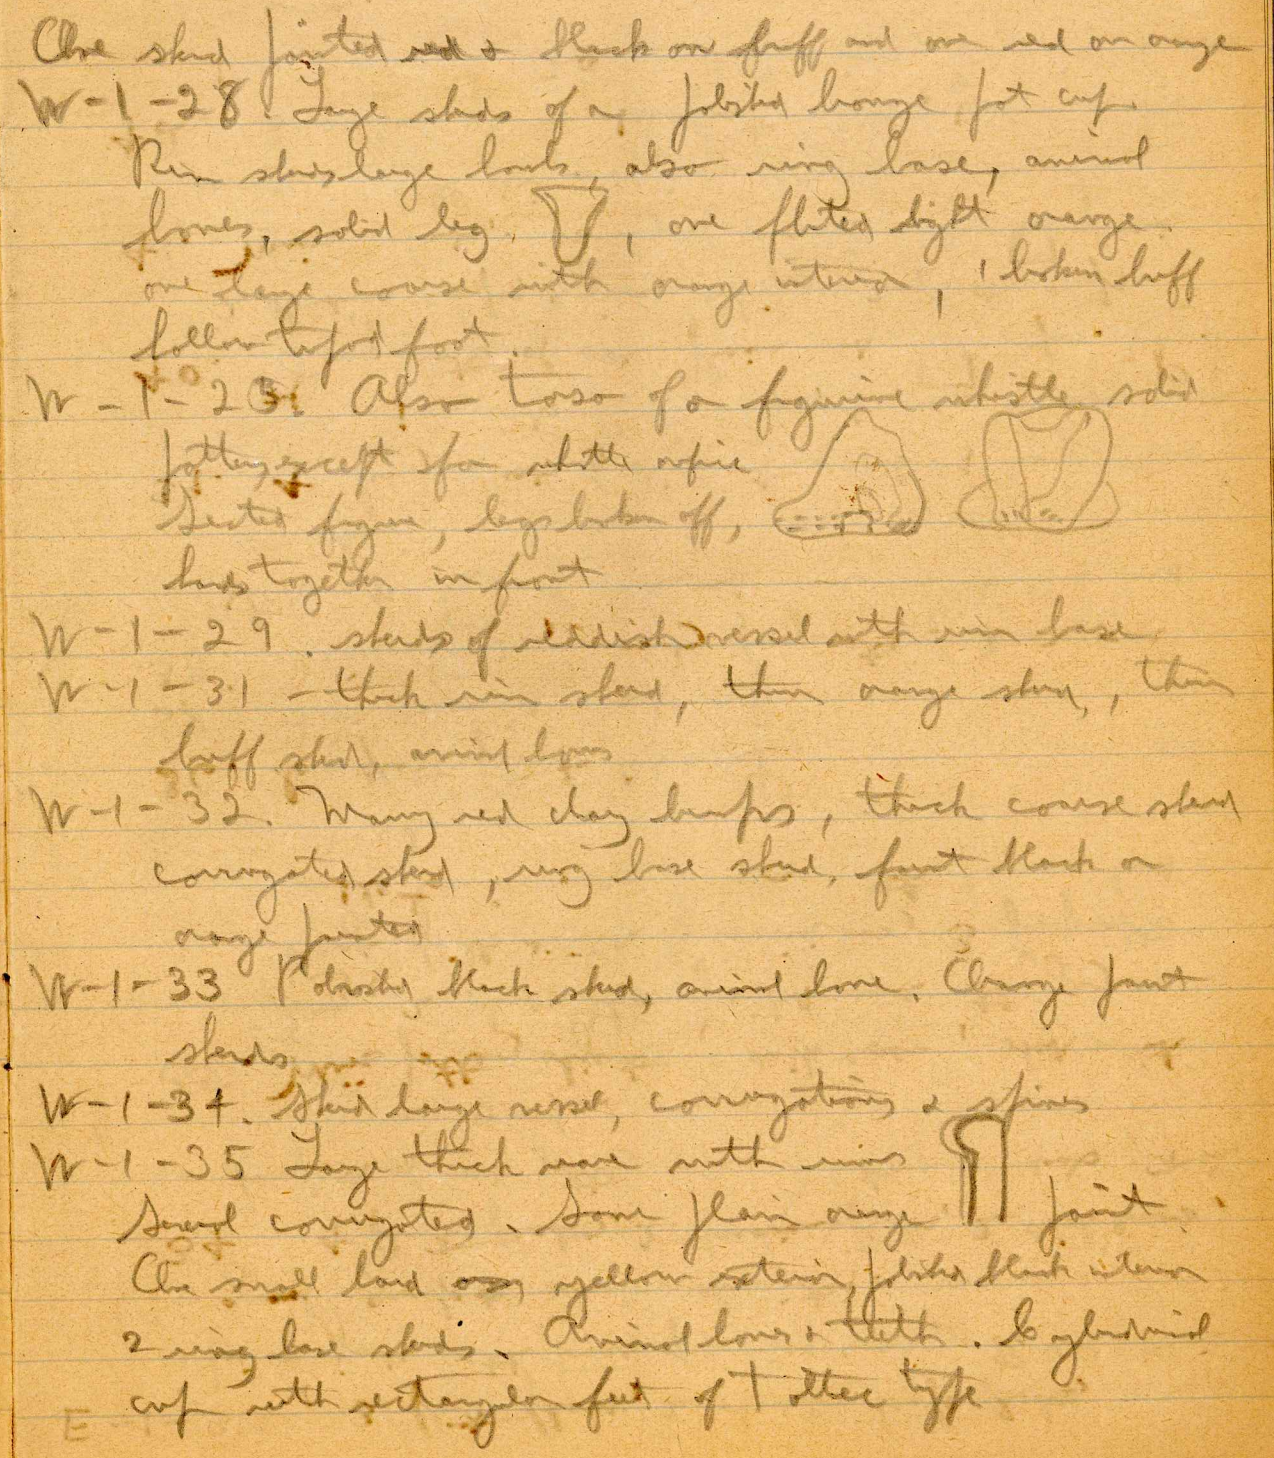 One sherd painted red & black on buff and one red on orange
W-1-28. Large sherds of a polished bronze pot cup.
Rim sherds large bowls, also ring base, animal
bones, solid leg , one fluted light orange.
one large coarse with orange interior, 1 broken buff
hollow tripod foot.
W-1-23. Also torso of a figurine whistle solid
pottery except for whistle orifice
Seated figure, legs broken off,
hands together in front
W-1-29. sherds of reddish vessel with rim base
W-1-31 - thick rim sherd, thin orange sherd, thin
buff sherd, animal bones
W-1-32. Many red clay lumps, thick coarse sherd
corrugated sherd, ring base sherd, faint black on
orange painted
W-1-33 Polished black sherd, animal bone. Orange paint
sherds
W-1-34. Sherd large vessel, corrugations & spines
W-1-35 Large thick ware with rims
Several corrugated. Some plain orange paint
One small bowl yellow exterior, polished black interior
2 ring base sherds. Animal bones & teeth. Cylindrical
cup with rectangular feet of Toltec type